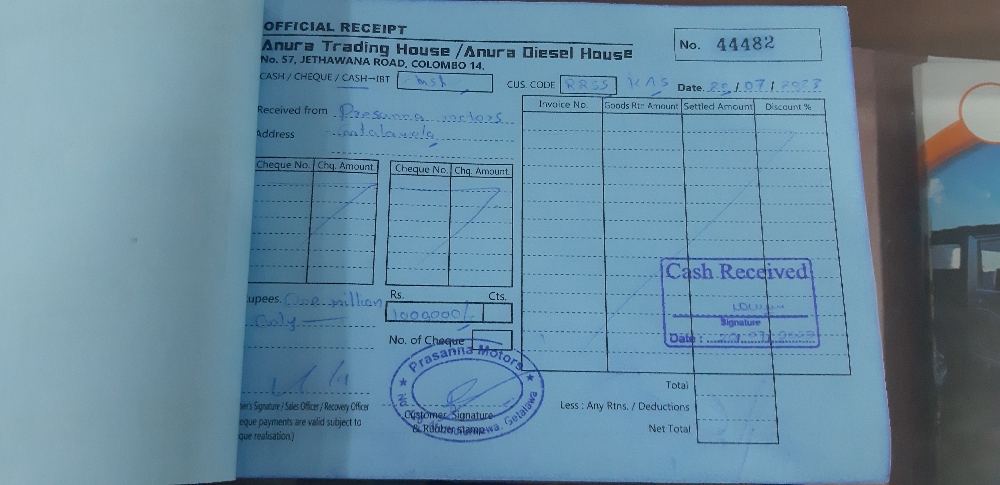 OFFICIAL RECEIPT
Anura Trading House / Anura Diesel House
No. 57, JETHAWANA ROAD, COLOMBO 14.
No. 44482
CASH / CHEQUE / CASH-IBT Cash
CUS. CODE RRSS KAS
Date. 25 / 07 / 2023
Received from Prasanna motors
Address
Cheque No. Chq. Amount
Cheque No. Chq. Amount
Invoice No. Goods Rtn Amount Settled Amount Discount %
upees. One million
Only
Rs. Cts.
1000000/-
No. of Cheque
Cash Received
Signature
Date : 25/07/2023
Prasanna Motors
Getalawa
Customer Signature
& Rubber stamp
er's Signature / Sales Officer / Recovery Officer
eque payments are valid subject to
que realisation.)
Total
Less : Any Rtns. / Deductions
Net Total